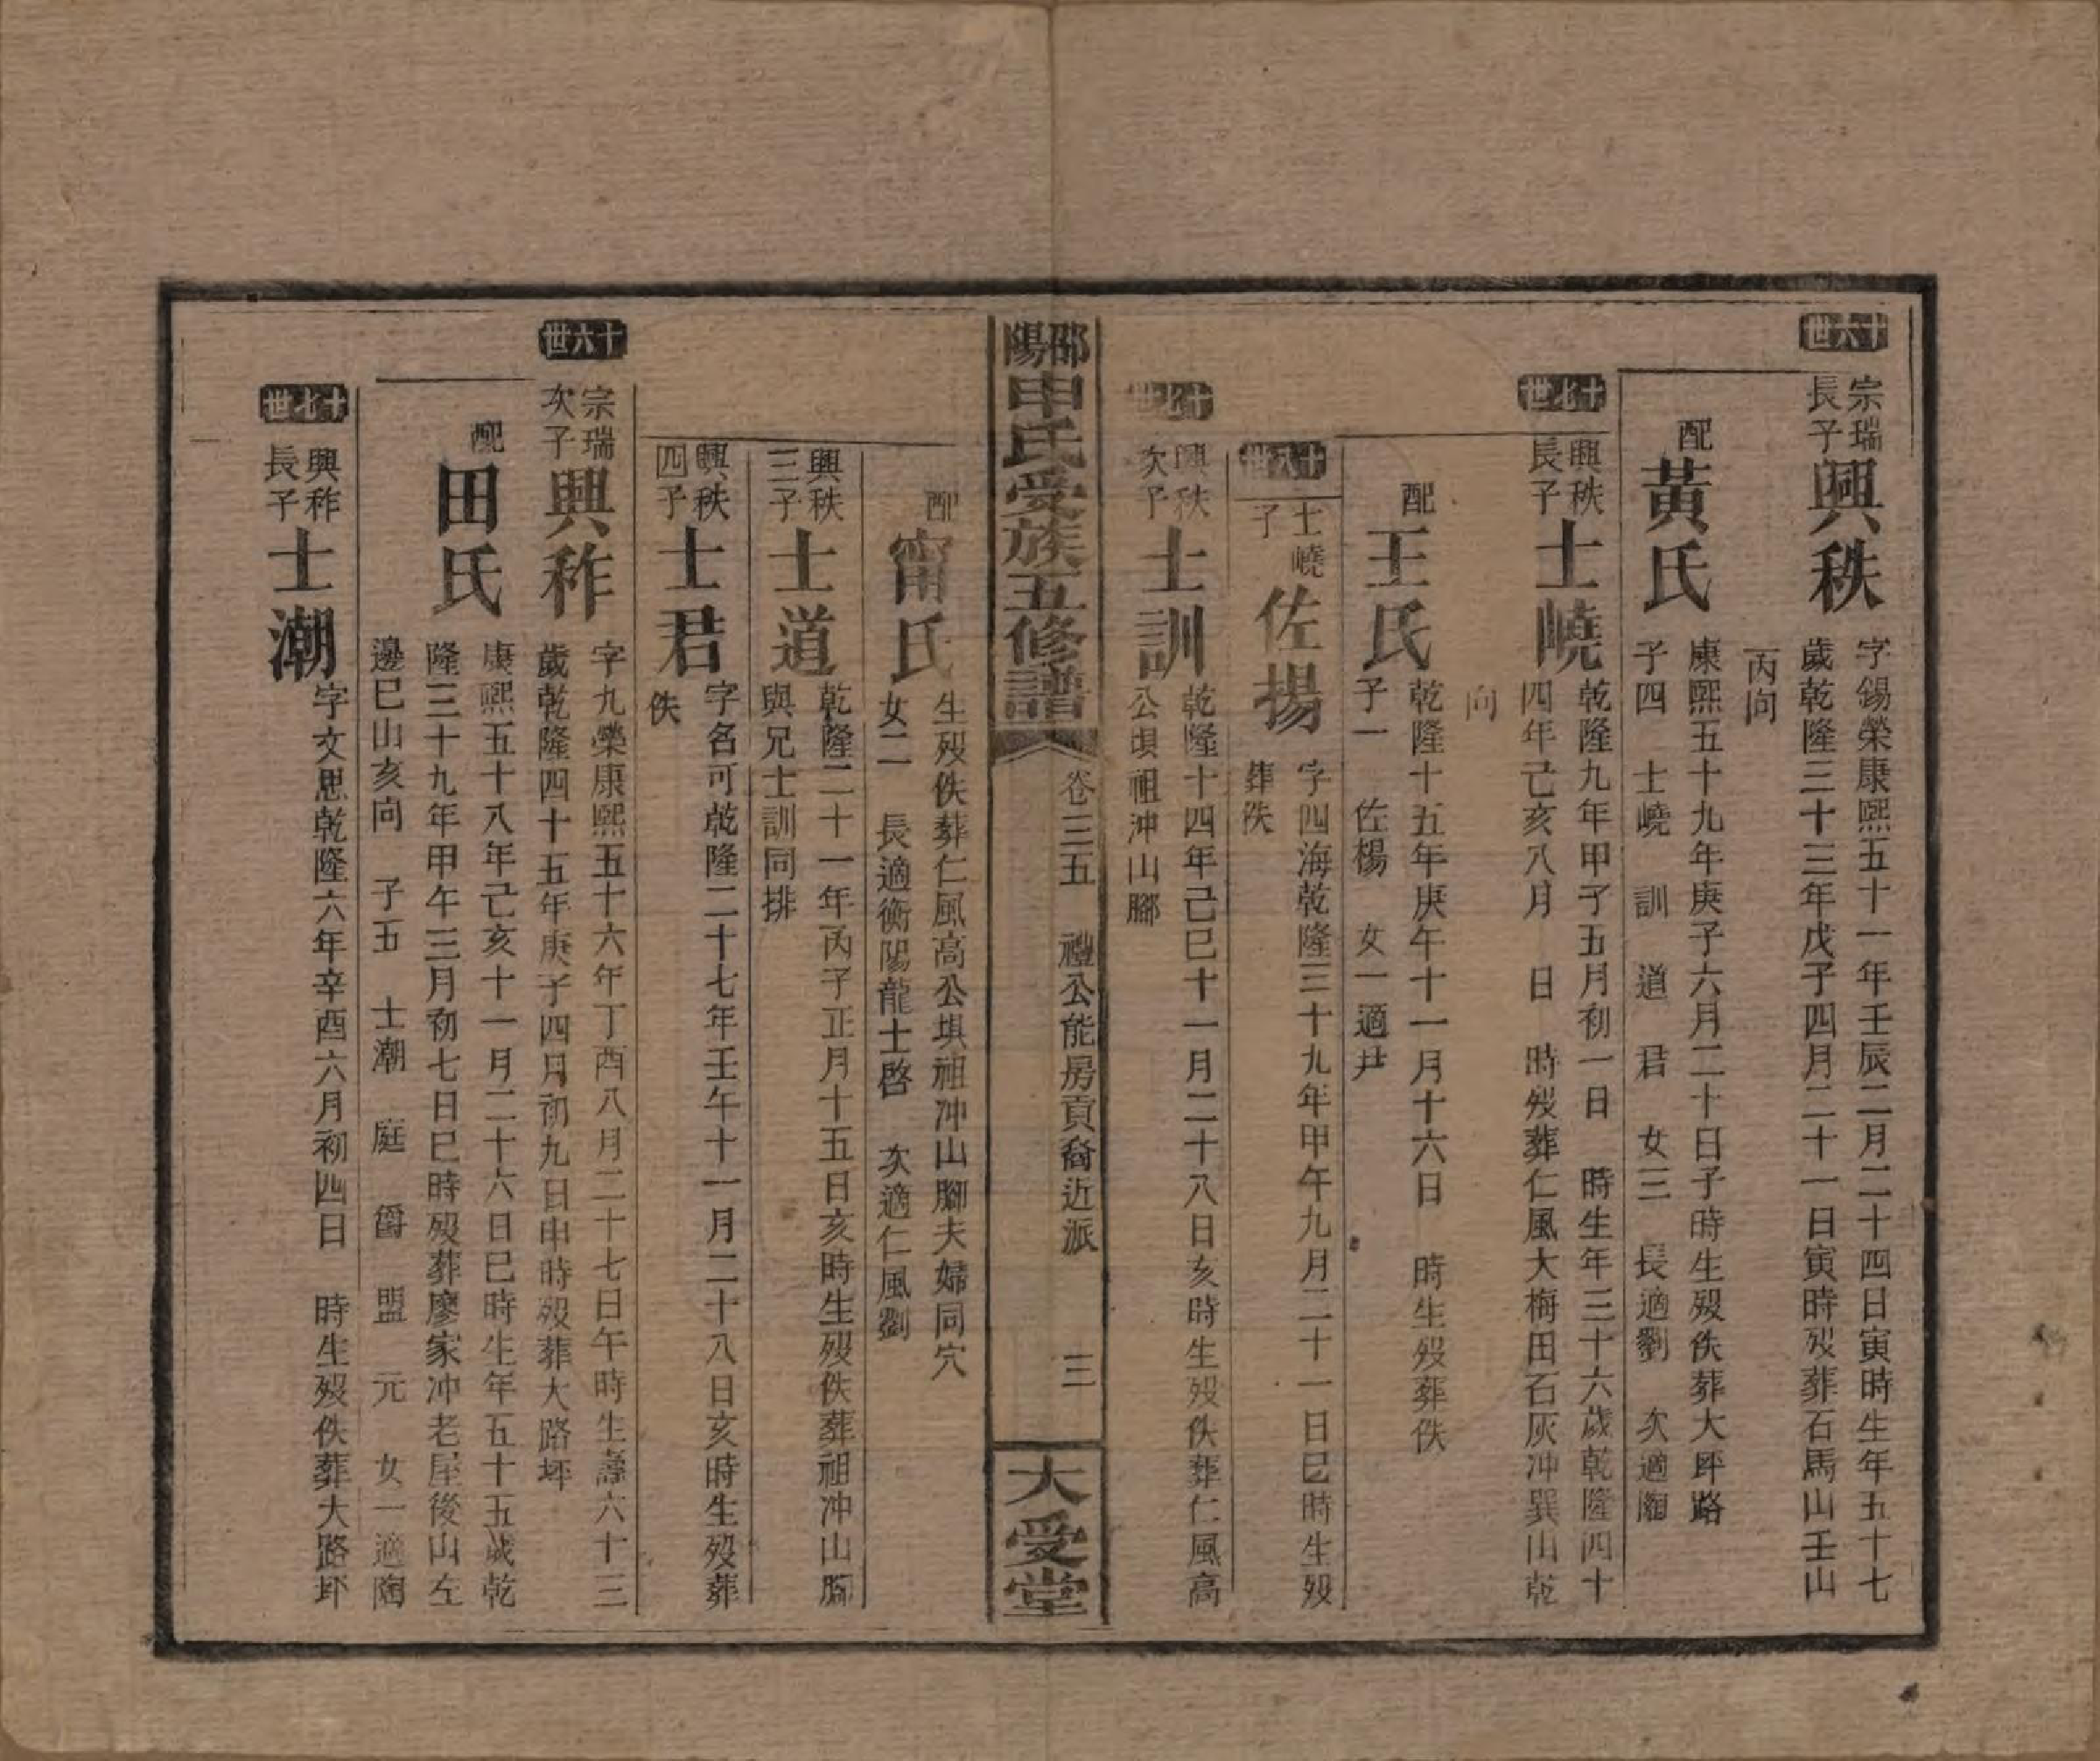 十六世
宗瑞長子興秩
字錫榮康熙五十一年壬辰二月二十四日寅時生年五十七
歲乾隆三十三年戊子四月二十一日寅時歿葬石馬山壬山
丙向
配黃氏
康熙五十九年庚子六月二十日子時生歿佚葬大坪路
子四 士嶢 訓 道 君 女三 長適劉 次適陶
十七世
興秩長子士嶢
乾隆九年甲子五月初一日 時生年三十六歲乾隆四十
四年己亥八月 日 時歿葬仁風大梅田石灰冲巽山乾
向
配王氏
乾隆十五年庚午十一月十六日 時生歿葬佚
子一 佐楊 女一適尹
十八世
士嶢子佐揚
字四海乾隆三十九年甲午九月二十一日巳時生歿
葬佚
十七世
興秩次子士訓
乾隆十四年己巳十一月二十八日亥時生歿佚葬仁風高
公垻祖冲山腳
邵陽申氏受族五修譜
卷三五 禮公能房貢裔近派 三
大受堂
配甯氏
生歿佚葬仁風高公垻祖冲山腳夫婦同穴
女二 長適衡陽龍士啓 次適仁風劉
興秩三子士道
乾隆二十一年丙子正月十五日亥時生歿佚葬祖冲山腳
與兄士訓同排
興秩四子士君
字名可乾隆二十七年壬午十一月二十八日亥時生歿葬
佚
十六世
宗瑞次子興秨
字九榮康熙五十六年丁酉八月二十七日午時生壽六十三
歲乾隆四十五年庚子四月初九日申時歿葬大路坪
配田氏
康熙五十八年己亥十一月二十六日巳時生年五十五歲乾
隆三十九年甲午三月初七日巳時歿葬廖家冲老屋後山左
邊巳山亥向 子五 士潮 庭 爵 盟 元 女一適陶
十七世
興秨長子士潮
字文思乾隆六年辛酉六月初四日 時生歿佚葬大路坪